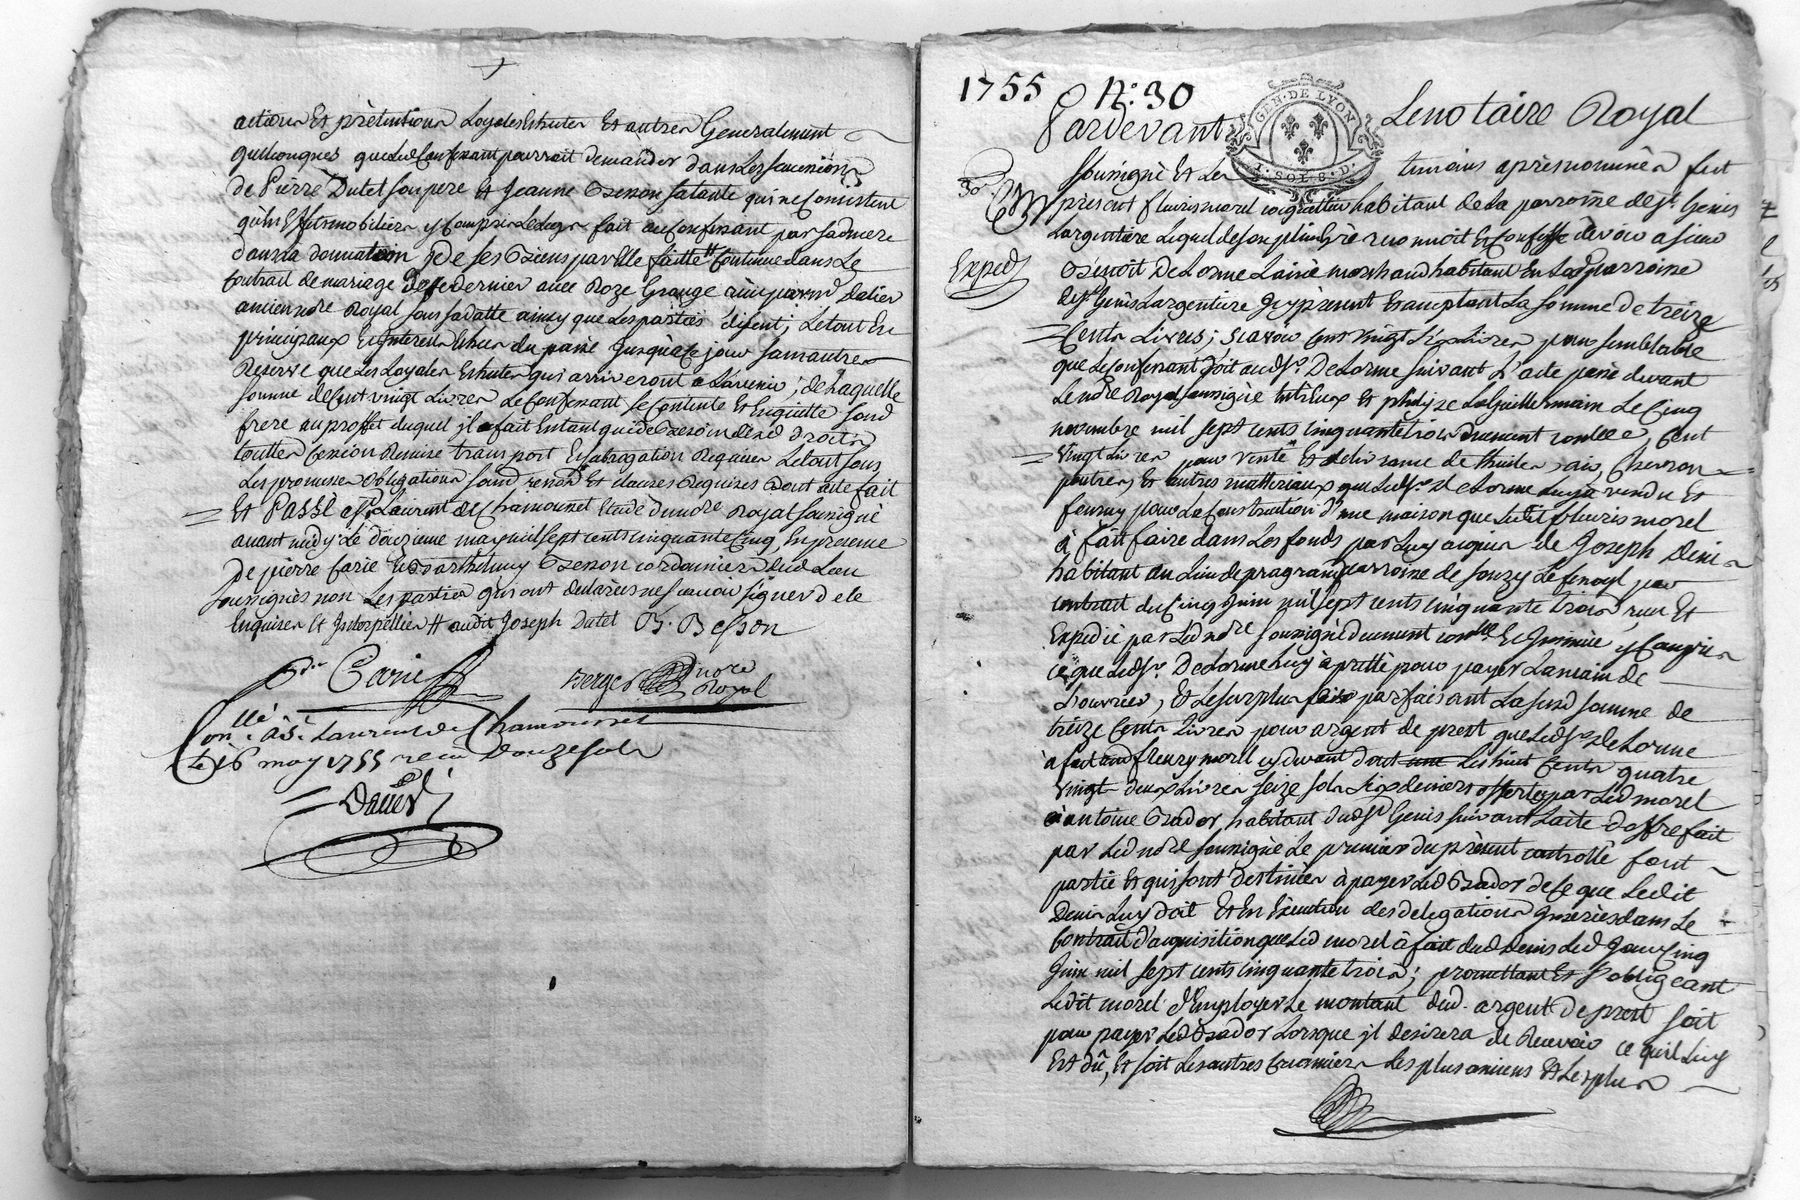 actions Et prètentions Loyales Ehutes Et autres Generalement
quelconques que led Confessant pourroit demander dans Les sucenions
de Pierre Dutet son pere et Jeanne Besson sa tante qui ne Consistent
qu'en Effets mobiliers y Compris Le legs fait au Confessant par sa d mere
dans la donnation De ses Biens par Elle faitte Contenue dans Le
Contrait de mariage de ce dernier avec Roze Grange reçu par Dalier
ancien nore Royal sous sa datte ainsy que Les parties disent; Le tout En
principaux Et interets Echus du passé Jusquà ce jour sans autres
Reserve que Les Loyales Ehutes qui arriveront a L'avenir; de Laquelle
somme de Cent vingt Livres Le Confessant se Contente Et En quitte sond
frere au proffet duquel jl a fait Entant que de Besoin desd droits
touttes Cession Remise transport Et subrogation Requises Le tout sous
Les promesses obligations soumd renons Et clauses Requises Dont acte fait
Et PASSÉ a St Laurent de Chamousset Etude du nore Royal soussigné
avant midy Le douzieme may mil sept cents cinquante Cinq, En presence
De pierre Carié Et Barthelmy Besson cordonniers dud Lieu
soussignés non Les parties qui ont declarées ne savoir signer de ce
Enquises Et Interpellées # audit Joseph Dutet B. Besson
Pr Carié
Berger nore Royal
Conllé à St Laurent de Chamousset
Le 16 may 1755 reçu Douze sols
David
1755 N.° 30
GEN · DE LYON
1 · SOL 8 · D ·
Pardevant Le notaire Royal
30
soussigné Et Les temoins après nommés fut
présent fleuris morel habitant de La parroisse de St Genis
Largentiere Lequel de son plein gré reconnoit Et Confesse devoir a sieur
Exped
Benoit De Lorme Lainé marchand habitant En Lad parroisse
de St Genis Largentiere Jcy present Et acceptant La somme de treize
Cents Livres; scavoir Cent vingt six Livres pour semblable
que Le Confessant Doit aud Sr. De Lorme suivant L'acte passé devant
Le nore Royal soussigné Entr'Eux Et Le Cinq
novembre mil sept cents cinquante trois duement conllé, Cent
vingt Livres pour vente Et delivrance de thuiles, ais, Chevrons
poutres, Et autres matteriaux que Led Sr. de Lorme Luy a vendu Et
fourny pour La Construction D'une maison que Ledit fleuris morel
à fait faire dans Les fonds par Luy acquis de Joseph Denis
habitant au Lieu de pragrand parroisse de souzy Le fenoyl par
contrait du Cinq Juin mil sept cents cinquante trois reçu Et
Expedié par Led nore soussigné duement conllé Et Jnsinué y Compris
ce que Led Sr. De Lorme Luy à pretté pour payer La main de
L'ouvrier, Et Le surplus parfaisant Lasusd somme de
treize Cents Livres pour argent de prest que Led Sr de Lorme
à fait aud fleury morel cy devant dont Les huit Cents quatre
vingt deux Livres seize sols six deniers offertes par Led morel
à antoine Bador, habitant dud St Genis suivant L'acte d'offre fait
par Led nore soussigné Le premier du présent controllé font
partie Et qui sont destinées à payer Led Bador de ce que Ledit
Denis Luy doit Et En Exécution des delegations Jnserées dans Le
Contrait d'acquisition que Led morel à fait dud Denis Led Jour Cinq
Juin mil sept cents cinquante trois; promettant Et s'obligeant
Ledit morel d'Employer Le montant dud argent De prest soit
pour payer Led Bador Lorsque jl desirera de Recevoir ce qu'il Luy
Est dû, Et soit Les autres Creanciers Les plus anciens Et Les plus